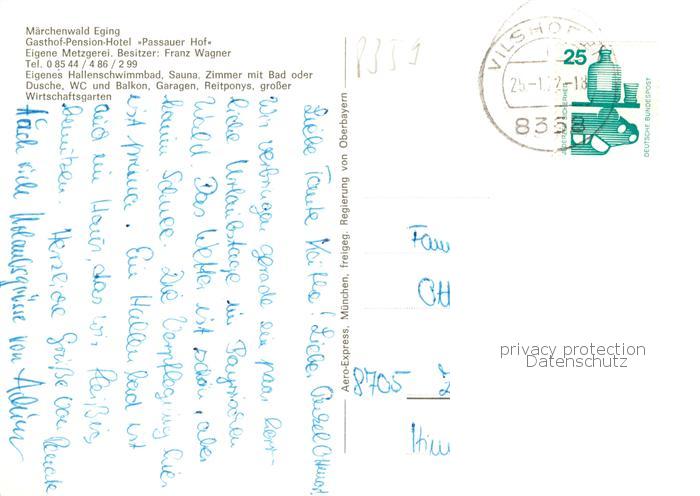 Märchenwald Eging
Gasthof-Pension-Hotel »Passauer Hof«
Eigene Metzgerei. Besitzer: Franz Wagner
Tel. 0 85 44 / 4 86 / 2 99
Eigenes Hallenschwimmbad, Sauna, Zimmer mit Bad oder
Dusche, WC und Balkon, Garagen, Reitponys, großer
Wirtschaftsgarten
Liebe Tante Lieber Onkel
Wir verbringen gerade ein paar herr-
liche Urlaubstage im Bayrischen
Wald. Das Wetter ist schön, aber
kaum Schnee. Die Verpflegung hier
ist prima. Ein Hallenbad ist
auch im Haus, das wir fleißig
benützen. Herzliche Grüße von Renate
Auch viele Urlaubsgrüsse von
Aero-Express, München, freigeg. Regierung von Oberbayern
VILSHOFEN
25
DEUTSCHE BUNDESPOST
Fam
8705
privacy protection
Datenschutz